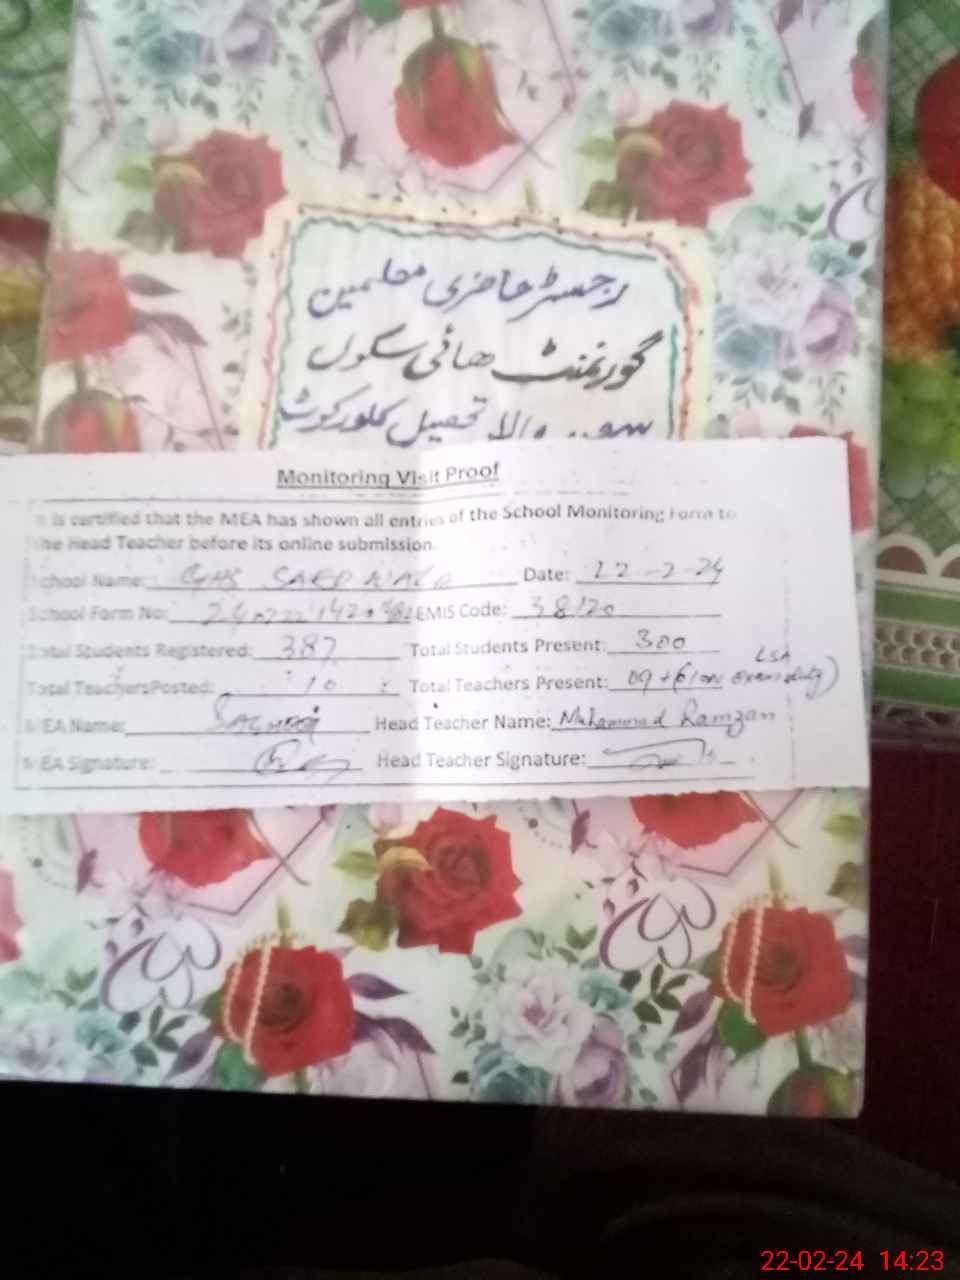 رجسٹر حاضری معلمین
گورنمنٹ ھائی سکول
والا تحصیل کلورکوٹ
Monitoring Visit Proof
It is certified that the MEA has shown all entries of the School Monitoring Form to
the Head Teacher before its online submission.
School Name: GHS Date: 22-2-24
School Form No: EMIS Code: 38120
Total Students Registered: 387 Total Students Present: 300
LSA
Total Teachers Posted: 10 Total Teachers Present: 09 + 6 (on Exam duty)
MEA Name: Head Teacher Name: Muhammad Ramzan
MEA Signature: Head Teacher Signature:
22-02-24 14:23